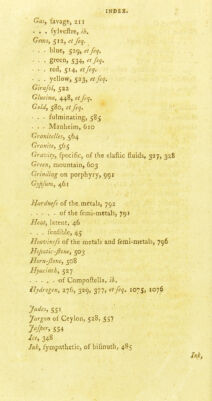 INDEX.
Gas, savage, 211
. . . sylvestre, ib.
Gems, 512, et seq.
. . . blue, 529, et seq.
. . . green, 534, et seq.
. . . red, 514, et seq.
. . . yellow, 523, et seq.
Girasol, 522
Glucine, 448, et seq.
Gold, 580, et seq.
. . . fulminating, 585
. . . Manheim, 610
Granitelles, 564
Granite, 565
Gravity, specific, of the elastic fluids, 327, 328
Green, mountain, 603
Grinding on porphyry, 991
Gypsum, 461
Hardness of the metals, 792
. . . . . of the semi-metals, 791
Heat, latent, 46
. . . sensible, 45
Heaviness of the metals and semi-metals, 796
Hepatic-stone, 503
Horn-stone, 508
Hyacinth, 527
. . . . . of Compostella, ib.
Hydrogen, 276, 329, 377, et seq. 1075, 1076
Jades, 551
Jargon of Ceylon, 528, 557
Jasper, 554
Ice, 348
Ink, sympathetic, of bismuth, 485
Ink,